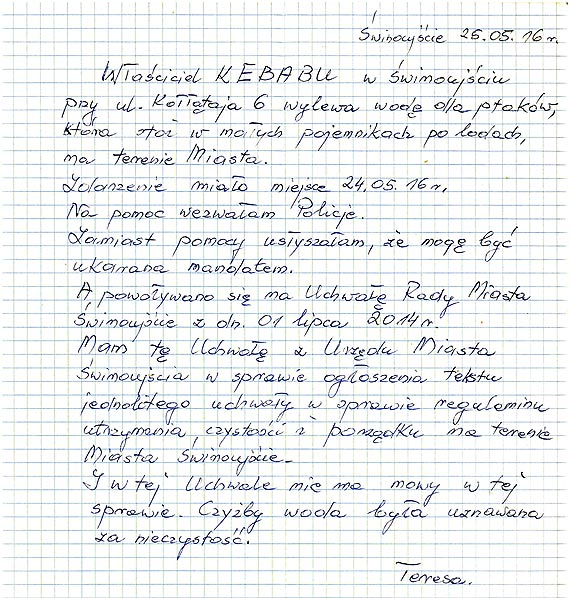 Świnoujście 25.05.16 r.
Właściciel KEBABU w Świnoujściu
przy ul. Kołłątaja 6 wylewa wodę dla ptaków,
która stoi w małych pojemnikach po lodach,
na terenie Miasta.
Zdarzenie miało miejsce 24.05.16 r.
Na pomoc wezwałam Policje.
Zamiast pomocy usłyszałam, że mogę być
ukarana mandatem.
A, powoływano się na Uchwałę Rady Miasta
Świnoujście z dn. 01 lipca 2014 r.
Mam tę Uchwałę z Urzędu Miasta
Świnoujścia w sprawie ogłoszenia tekstu
jednolitego uchwały w sprawie regulaminu
utrzymania czystości i porządku na terenie
Miasta Świnoujście.
I w tej Uchwale nie ma mowy w tej
sprawie. Czyżby woda była uznawana
za nieczystość.
Teresa.